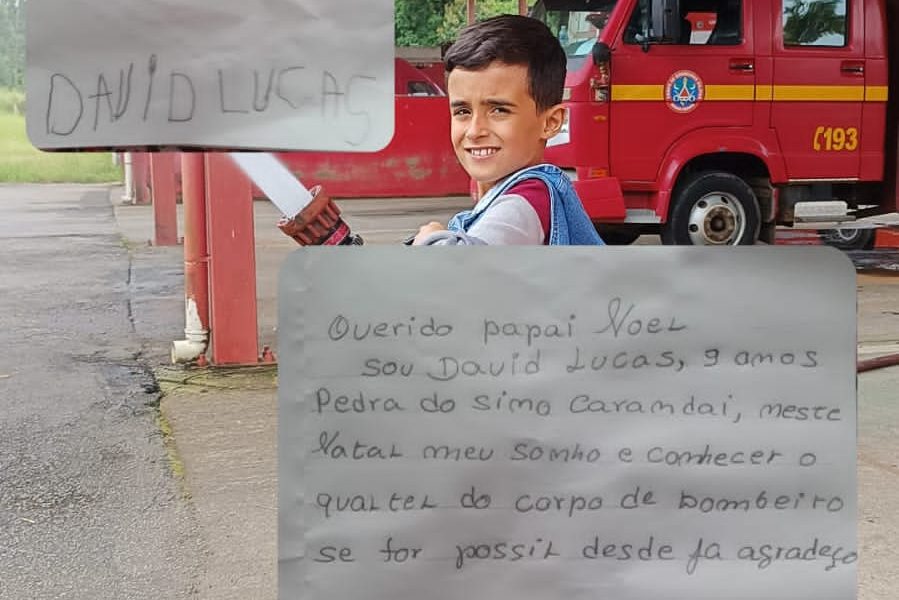 DAViD LUCAS
193
Querido papai Noel
Sou David Lucas, 9 amos
Pedra do simo Caramdai, meste
Natal meu somho e comhecer o
qualtel do corpo de bombeiro
se for possil desde ja agradeço